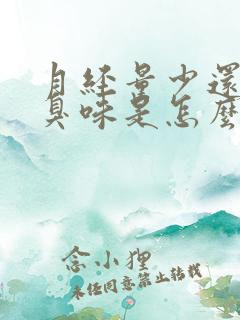 月经量少还
臭味是怎么
念小狸
未经同意禁止转载